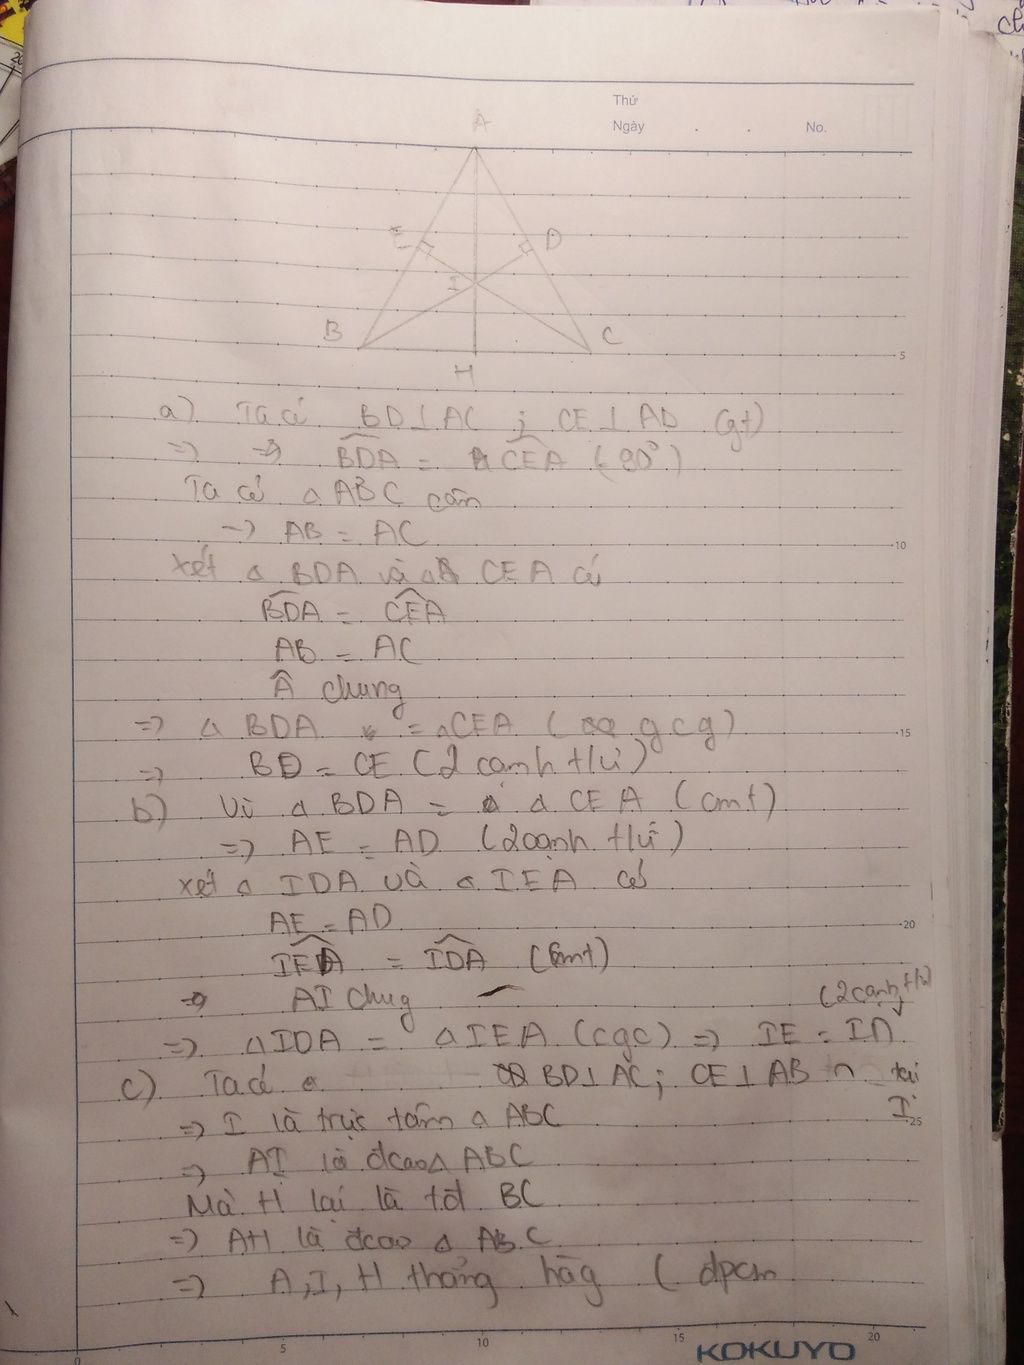 Thứ
Ngày . . No.
A
E D
I
B C
H
5
a) Ta có BD⊥AC ; CE⊥AD (gt)
=> => BDA = CEA (=90°)
Ta có △ABC cân
=> AB = AC
10
Xét △ BDA và △ CEA có
BDA = CEA
AB = AC
Â chung
=> △ BDA = △CEA ( gcg)
15
=> BD = CE (2 cạnh t/ứ)
b) Vì △ BDA = △ CEA (cmt)
=> AE = AD (2 cạnh t/ứ)
xét △ IDA và △ IEA có
AE = AD
20
IEA = IDA (cmt)
=> AI chug
(2 cạnh t/ứ)
=> △IDA = △IEA (cgc) => IE = ID
c) Ta có BD⊥AC; CE⊥AB ∩ tại
I
25
=> I là trực tâm △ ABC
=> AI là đcao△ ABC
Mà H lại là tđ BC
=> AH là đcao △ ABC
=> A, I, H thẳng hàg ( đpcm
0 5 10 15 20
KOKUYO